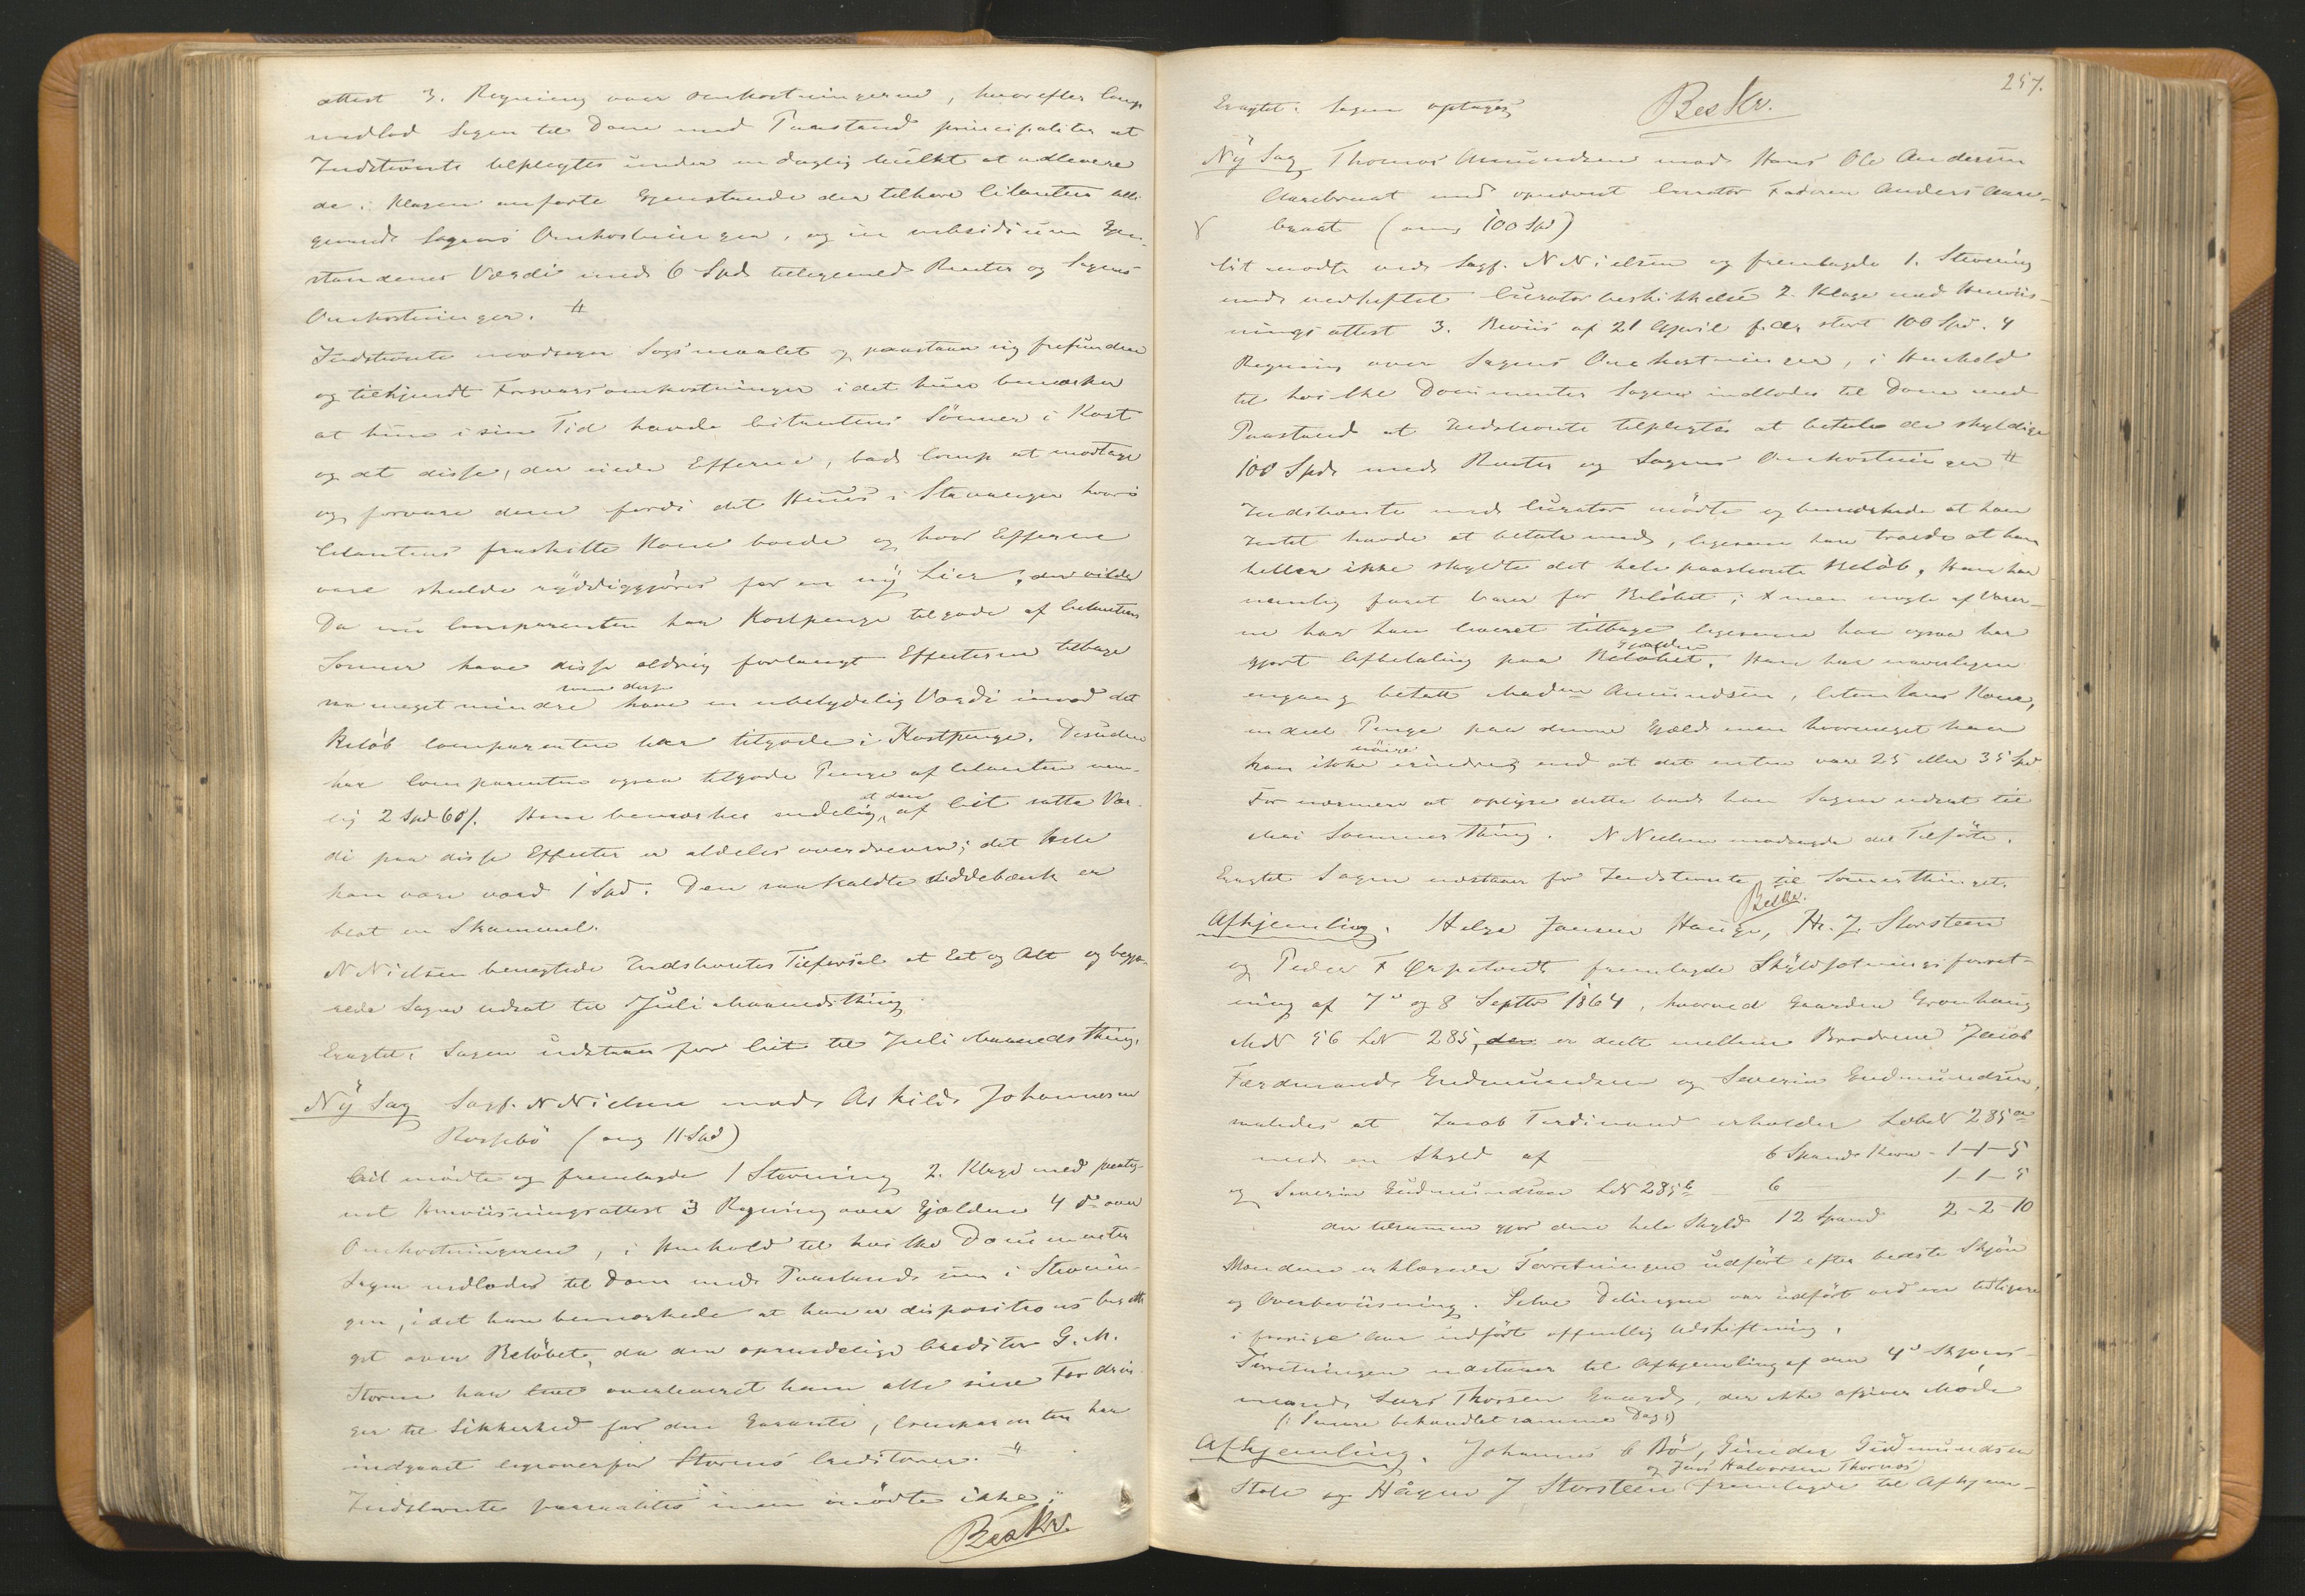 attest 3. Regning over Omkostningerne, hvorefter Comp
indlod Sagen til Dom med Paastand principaliter at
Indstevnte tilpligtes under en daglig Mulkt at udlevere
de i Klagen anførte Gjenstande der tilhøre Citanten alli-
gemeds Sagens Omkostninger, og in subsidium Gjen-
standenes Værdi med 6 Spd tilligemed Renter og Sagens
Omkostninger. #
Indstevnte modsagde Søgsmaalet og paastaar sig frifunden
og tilkjendt Forsvarsomkostninger idet hun bemærker
at hun i sin Tid havde Citantens Sønner i Kost
og at disse, der eiede Effterne, bad Comp at modtage
og forvare dem fordi det Huus i Stavanger hvori
Citantens fraskilte Kone boede og hvor Effterne
vare skulde ryddiggjøres for en ny Leier, der vilde
Da nu Comparenten har Kostpenge tilgode af Citantens
Sønner have disse aldrig forlangt Effecterne tilbage
saa meget mindre som disse have en ubetydelig Værdi imod det
Beløb Comparenten har tilgode i Kostpenge. Desuden
har Comparenten ogsaa tilgode Penge af Citanten nem-
lig 2 Spd 60 /. Hun bemærker endelig, at den af Cit satte Vær-
di paa disse Effecter er aldeles overdreven; det Hele
kan være værd 1 Spd. Den saakaldte Siddebænk er
blot en Skammel.
N Nielsen benegtede Indstevntes Tilførsel et Eet og Alt og begjæ-
rede Sagen udsat til Juli Maanedsthing.
Eragtet: Sagen udstaaer for Cit til Juli Maanedsthing.
Ny Sag Sagf. N Nielsen mod Askild Johannesen
Rossebø (ang 11 Spd)
Cit mødte og fremlagde 1 Stevning 2. Klage med paateg-
net Henviisningsattest 3 Regning over Gjælden 4 do over
Omkostningerne, i Henhold til hvilke Documenter
Sagen indlodes til Dom med Paastand som i Stevnin-
gen, idet han bemærkede at han er dispositionsberetti-
get over Beløbet, da den oprindelige Creditor G. M.
Storm har overleveret ham alle sine Fordrin-
ger til Sikkerhed for den Garanti, Comparenten har
indgaaet ligeoverfor Storms Creditorer. #
Indstevnte paaraabtes men mødte ikke.
Beskr.
257.
Eragtet: Sagen optages
Beskr.
Ny Sag Thomas Amundsen mod Hans Ole Andersen
Aarebraat med opnævnt Curator Faderen Anders Aare-
braat (ang 100 Spd)
Cit mødte ved Sagf. N Nielsen og fremlagde 1. Stevning
med vedheftet Curatorbeskikkelse 2. Klage med Henviis-
ningsattest 3. Beviis af 21 April f. A. stort 100 Spd. 4
Regning over Sagens Omkostninger, i Henhold
til hvilke Documenter Sagen indlodes til Dom med
Paastand at Indstevnte tilpligtes at betale de skyldige
100 Spd med Renter og Sagens Omkostninger #
Indstevnte med Curator mødte og bemærkede at han
Intet havde at betale med, ligesom han troede at han
heller ikke skyldte det hele paastevnte Beløb. Han har
nemlig faaet Varer for Beløbet; men nogle af Varer-
ne har han leveret tilbage ligesom han ogsaa har
gjort Afbetaling paa Beløbet Gjælden. Han har navnligen
engang betalt Madm Amundsen, Citantens Kone,
en deel Penge paa denne Gjæld men hvormeget han
kan ikke nöie erindre end at det enten var 25 eller 35 Spd
For nærmere at oplyse dette bad han Sagen udsat til
Mai Sommerthing. N Nielsen modsagde det Tilførte.
Eragtet Sagen udstaaer for Indstevnte til Sommerthinget.
Beskr.
Afhjemling. Helge Jansen Hauge, H. J. Storsteen
og Peder F fremlagde Skyldsætningsforret-
ning af 7de og 8 Septbr 1864, hvorved Gaarden Grønhaug
MN 56 LN 285, den er deelt mellem Brødrene Jacob
Ferdinand Gudmundsen og Severin Gudmundsen,
saaledes at Jacob Ferdinand erholder LøbeN 285a
med en Skyld af 6 Spands Korn - 1-1-5
og Severin Gudmundsen LN 285b 6 1-1-5
der tilsammen gjør den hele Skyld 12 Spand 2-2-10
Mændene erklærede Forretningen udført efter bedste Skjøn
og Overbeviisning. Selve Delingen var udført ved en tidligere
i forrige Aar udført offentlig Udskiftning.
Forretningen udstaaer til Afhjemling af den 4de Skjøns-
mand Lars Thorsen Gaard, der ikke afgiver Møde
(: Senere behandlet samme Dag :)
Afhjemling. Johannes C Bø, Gunder Gudmundsen
og Jens Halvorsen Thornæs
Stole og Haagen J Storsteen fremlagde til Afhjem-